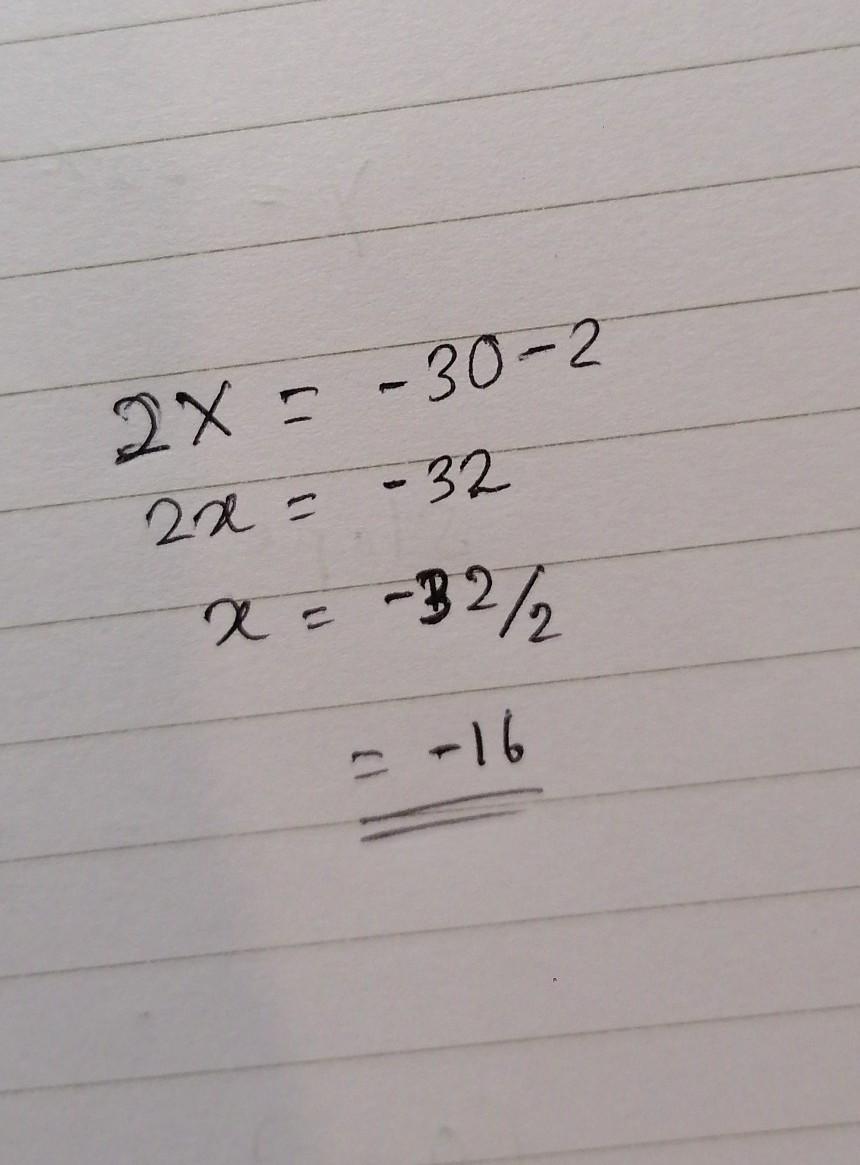 2x = -30-2
2x = -32
x = -32/2
= -16